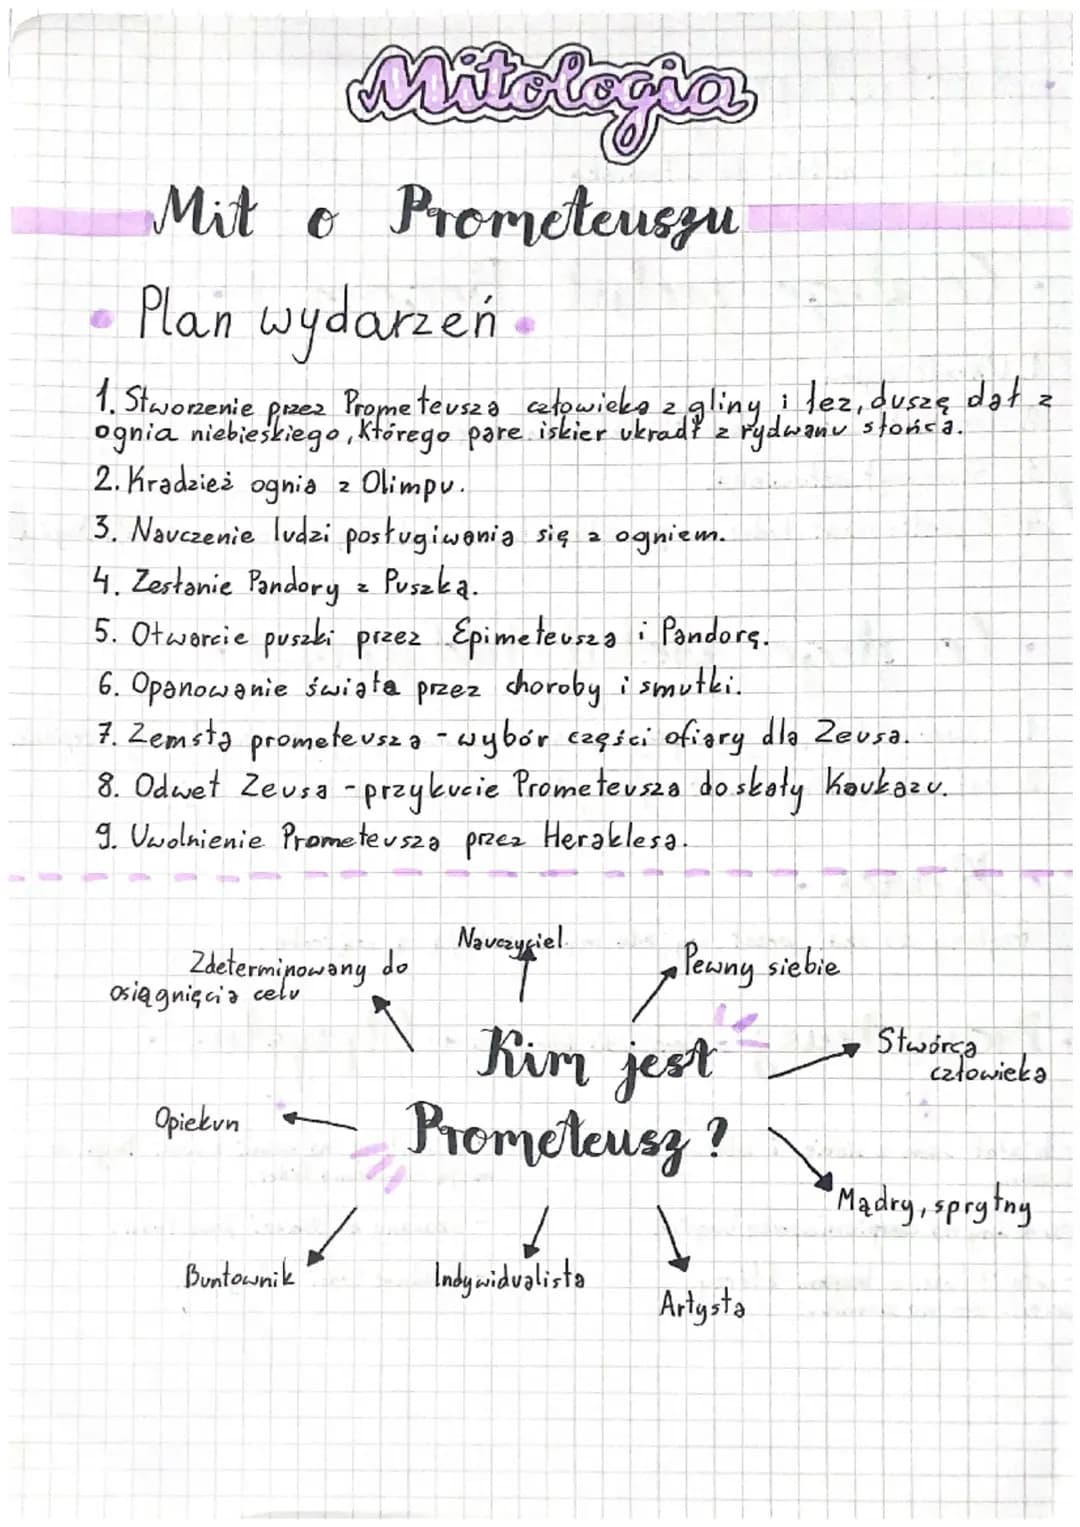 Mitologia
Mit o Prometeuszu
Plan wydarzeń
1. Stworzenie przez Prometeusza człowieka z gliny i łez, duszę dał z
ognia niebieskiego, którego parę iskier ukradł z rydwanu słońca.
2. Kradzież ognia z Olimpu.
3. Nauczenie ludzi posługiwania się z ogniem.
4. Zesłanie Pandory z Puszką.
5. Otwarcie puszki przez Epimeteusza i Pandorę.
6. Opanowanie świata przez choroby i smutki.
7. Zemsta prometeusza - wybór części ofiary dla Zeusa.
8. Odwet Zeusa - przykucie Prometeusza do skały Kaukazu.
9. Uwolnienie Prometeusza przez Heraklesa.
Nauczyciel
Zdeterminowany do
osiągnięcia celu
Pewny siebie
Kim jest
Prometeusz?
Stwórca
człowieka
Opiekun
Mądry, sprytny
Buntownik
Indywidualista
Artysta